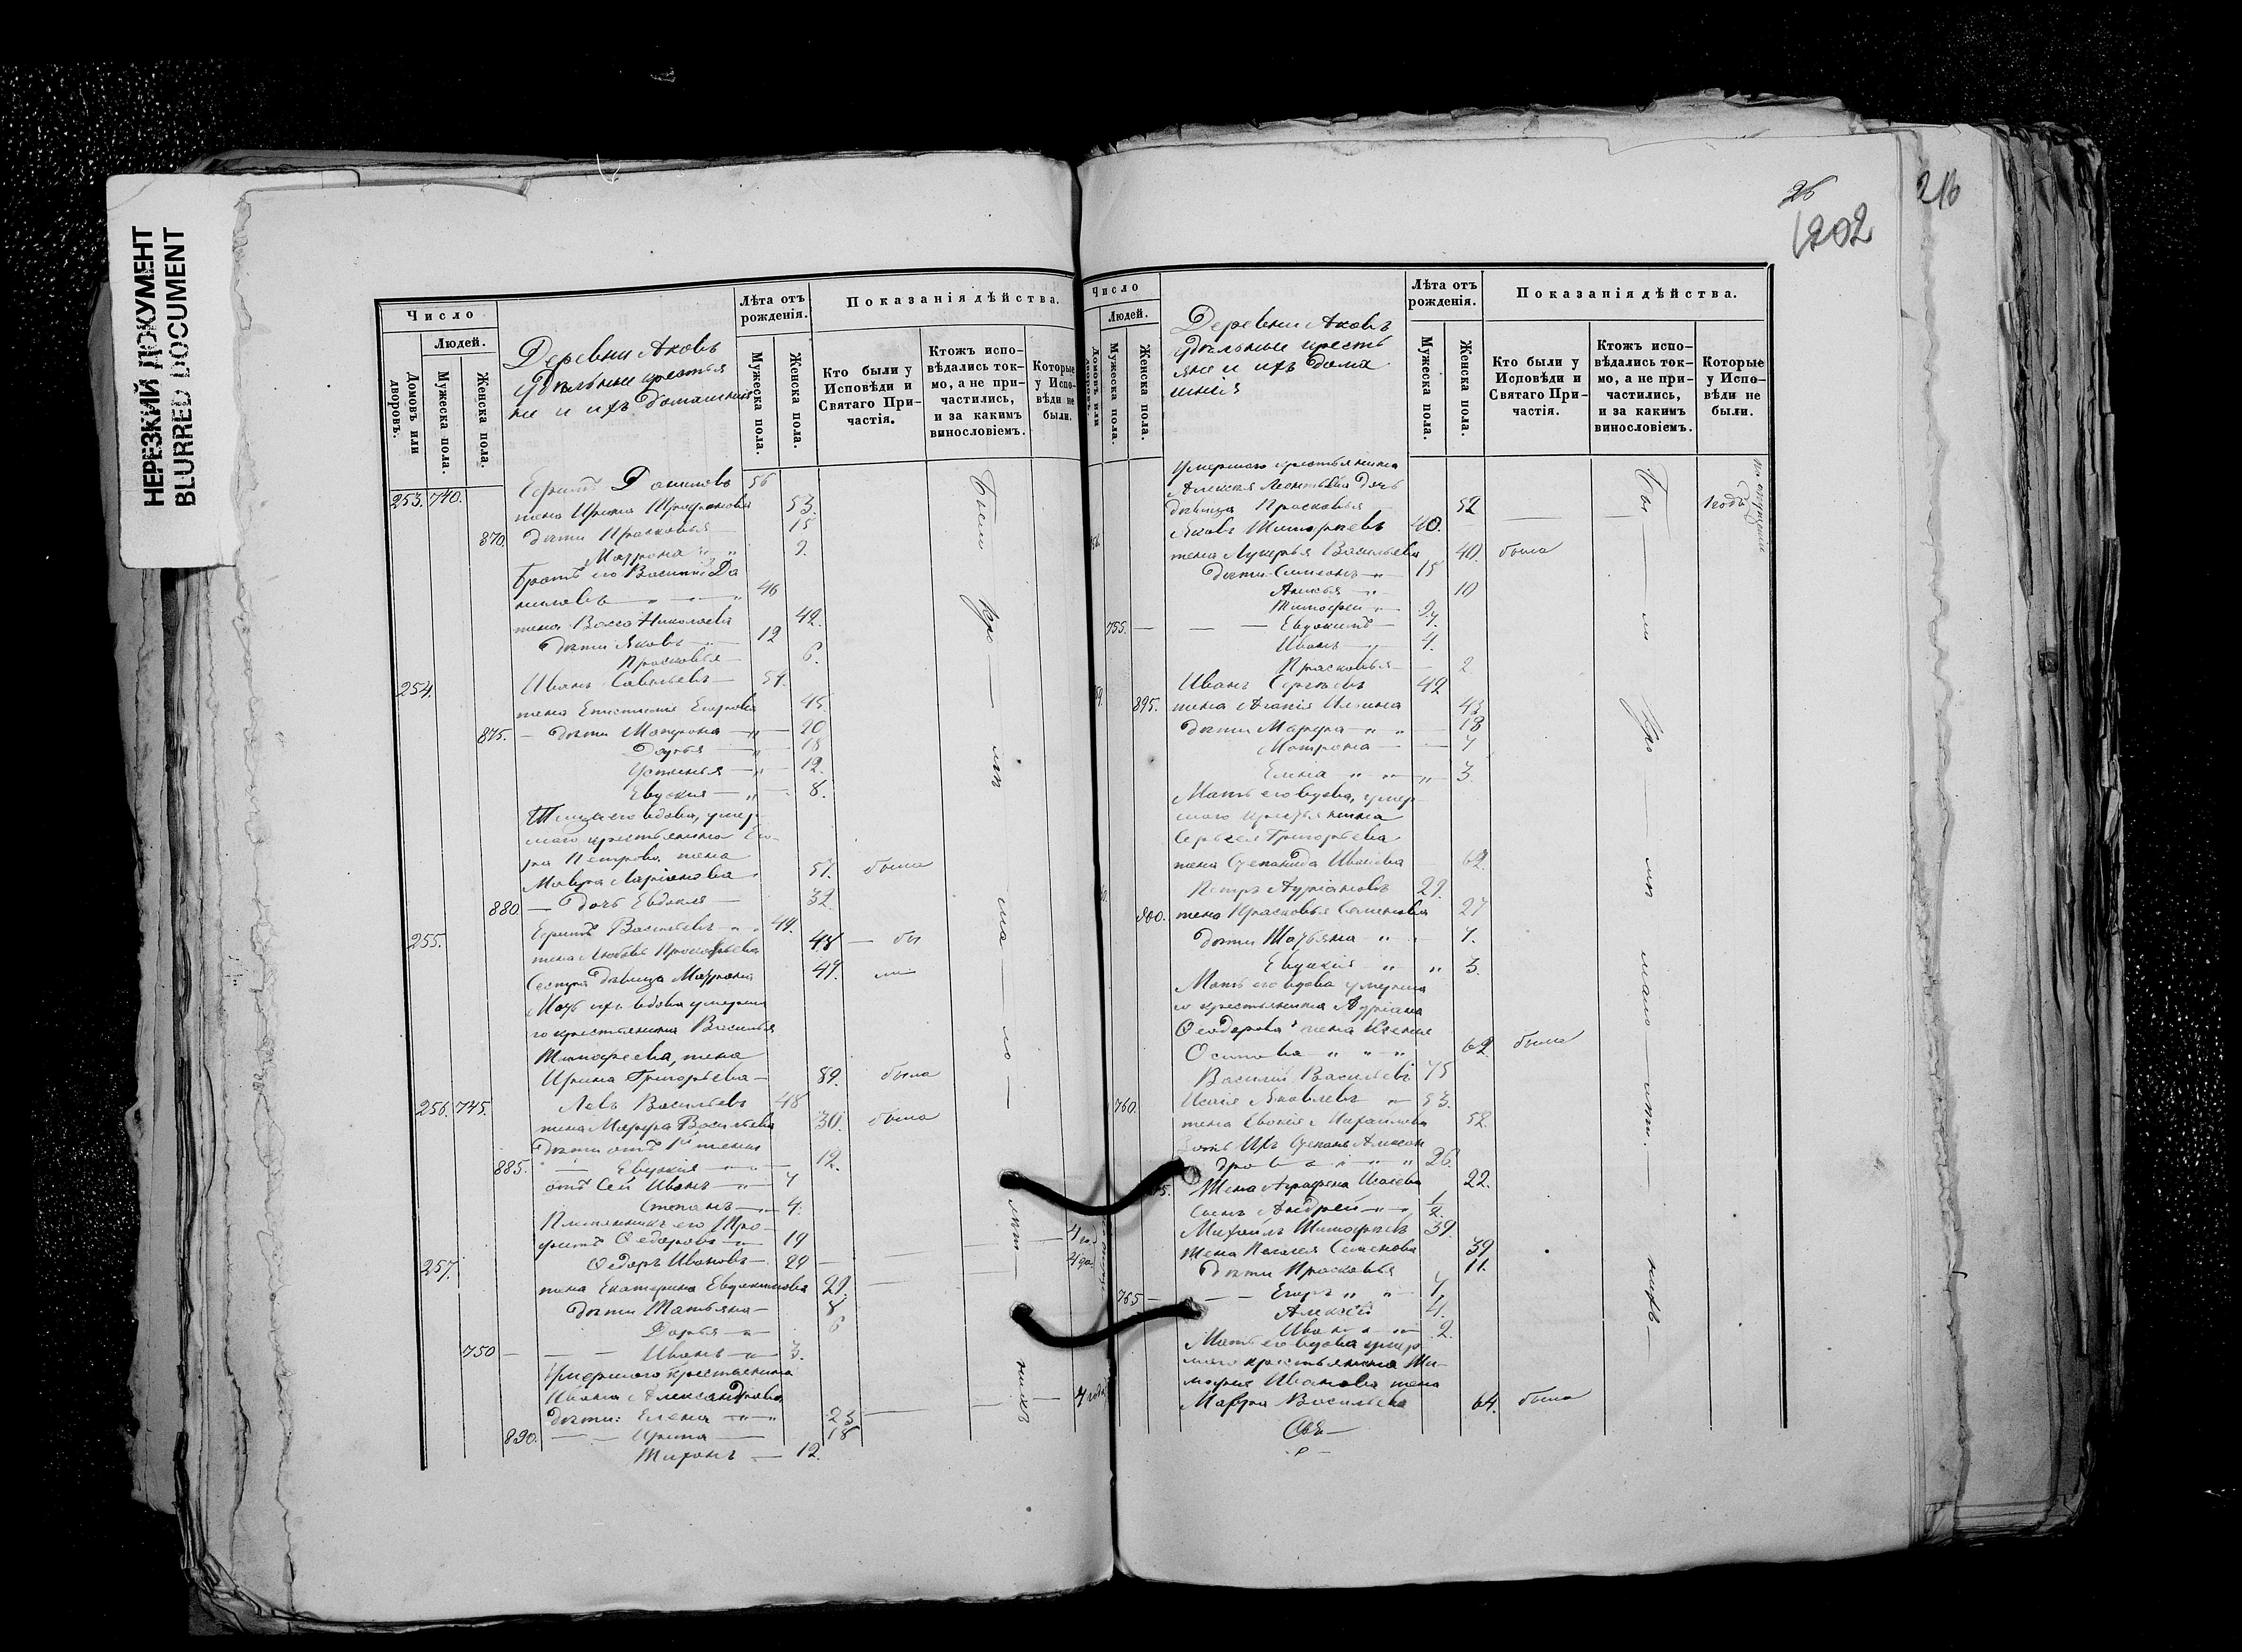 НЕРЕЗКИЙ ДОКУМЕНТ
BLURRED DOCUMENT
Число
Людей.
Домовъ или дворовъ.
Мужеска пола.
Женска пола.
Деревни Яковъ
удѣльные крестья
не и ихъ домашнія
Лѣта отъ рожденія.
Мужеска пола.
Женска пола.
Показанія дѣйства.
Кто были у Исповѣди и Святаго Причастія.
Ктожъ исповѣдались токмо, а не причастились, и за какимъ винословіемъ.
Которые у Исповѣди не были.
253. 740. Ефимъ Даниловъ 56
жена Ирина 53.
870. дѣти Прасковья 15
Матрона 9.
братъ его Василій Да
ниловъ 46
жена Васса Николаева 42.
дѣти Яковъ 12
Прасковья 6.
254. Иванъ Савельевъ 54.
жена Епистимія Егорова 45.
875. дѣти Матрона 20
Дарья 15
Устинья 12.
Евдокия 8.
Теща его вдова, умер
шаго крестьянина Его
ра Петрова жена
Мавра Ларіонова 57. была
880 дочь Евдокия 32.
255. Ефимъ Васильевъ 44.
жена Любовь Прокофьева 48 бы
Сестра дѣвица Матрона 47. ли
Мать ихъ вдова умерша
го крестьянина Василья
Тимофеева, жена
Ирина Григорьева 89. была
256. 745. Левъ Васильевъ 48
жена Марфа Васильева 30. была
дѣти отъ 1й жены
885. Евдокія 12.
отъ сей Иванъ 7
Степанъ 4.
Племянникъ его Тро
фимъ Ѳедоровъ 19
257. Ѳедоръ Ивановъ 29
жена Екатерина Евдокимова 29.
дѣти Татьяна 8
Дарья 6
750 Иванъ 3.
Умершаго крестьянина
Ивана Александрова
дѣти: Елена 23 4 года
890. Ирина 18
Тихонъ 12.
26
1202
210
Число
Людей.
Домовъ или дворовъ.
Мужеска пола.
Женска пола.
Деревни Яковъ
удѣльные кресть
яне и ихъ дома
шнія
Лѣта отъ рожденія.
Мужеска пола.
Женска пола.
Показанія дѣйства.
Кто были у Исповѣди и Святаго Причастія.
Ктожъ исповѣдались токмо, а не причастились, и за какимъ винословіемъ.
Которые у Исповѣди не были.
Умершаго крестьянина
Алексея Леонтьева дочь
дѣвица Прасковья 52
Яковъ Тимофеевъ 40.
жена Лукерья Васильева 40. была
дѣти Симеонъ 15
10
Тимофей 9.
755. Евдокимъ 7.
Иванъ 4.
Прасковья 2
Иванъ Сергѣевъ 42
895. жена Агапія Ильина 43
дѣти Марфа 18
Матрона 7
Елена 3.
Мать его вдова, умер
шаго крестьянина
Сергея Григорьева
жена Степанида Иванова 62.
Петръ Адріановъ 29.
900. жена Прасковья Семенова 27
дѣти Татьяна 7.
Евдокія 3.
Мать его вдова умерша
го крестьянина Адріана
Ѳеодорова жена Ксенія
Осипова 62. была
Василій Васильевъ 75
760. Исаія Яковлевъ 53.
жена Евдокія Михайлова 52.
Зять ихъ Степанъ Алексан
дровъ 26.
Жена Аграфена Исаева 22.
Сынъ Андрей ½
Михайлъ Тимофеевъ 39.
жена Пелагея Семенова 39
дѣти Прасковья 11.
765 Егоръ 7
Алексѣй 4.
Иванъ 2.
Мать его вдова умер
шаго крестьянина Ти
мофея Иванова жена
Марфа Васильева 64. была